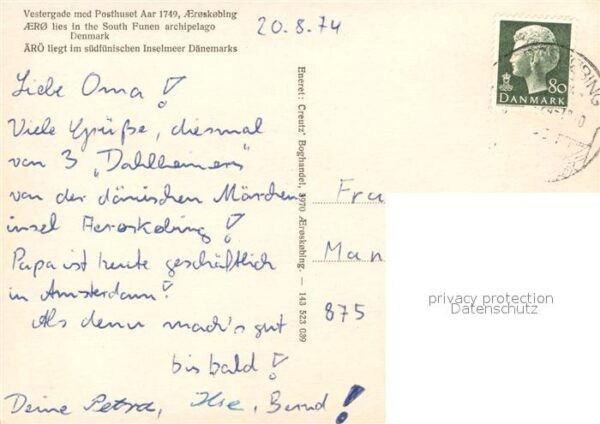 Vestergade med Posthuset Aar 1749, Ærøskøbing
ÆRØ lies in the South Funen archipelago
Denmark
ÄRÖ liegt im südfünischen Inselmeer Dänemarks
20.8.74
80
DANMARK
Liebe Oma!
Viele Grüße, diesmal
von 3 "Dahlheimern"
von der dänischen Märchen
insel Aerøskøbing!
Papa ist heute geschäftlich
in Amsterdam!
Als denn mach's gut
bis bald!
Deine Petra, Ilse, Bernd!
Eneret: Creutz' Boghandel, 5970 Ærøskøbing. — 143 523 039
Fra
Man
875
privacy protection
Datenschutz